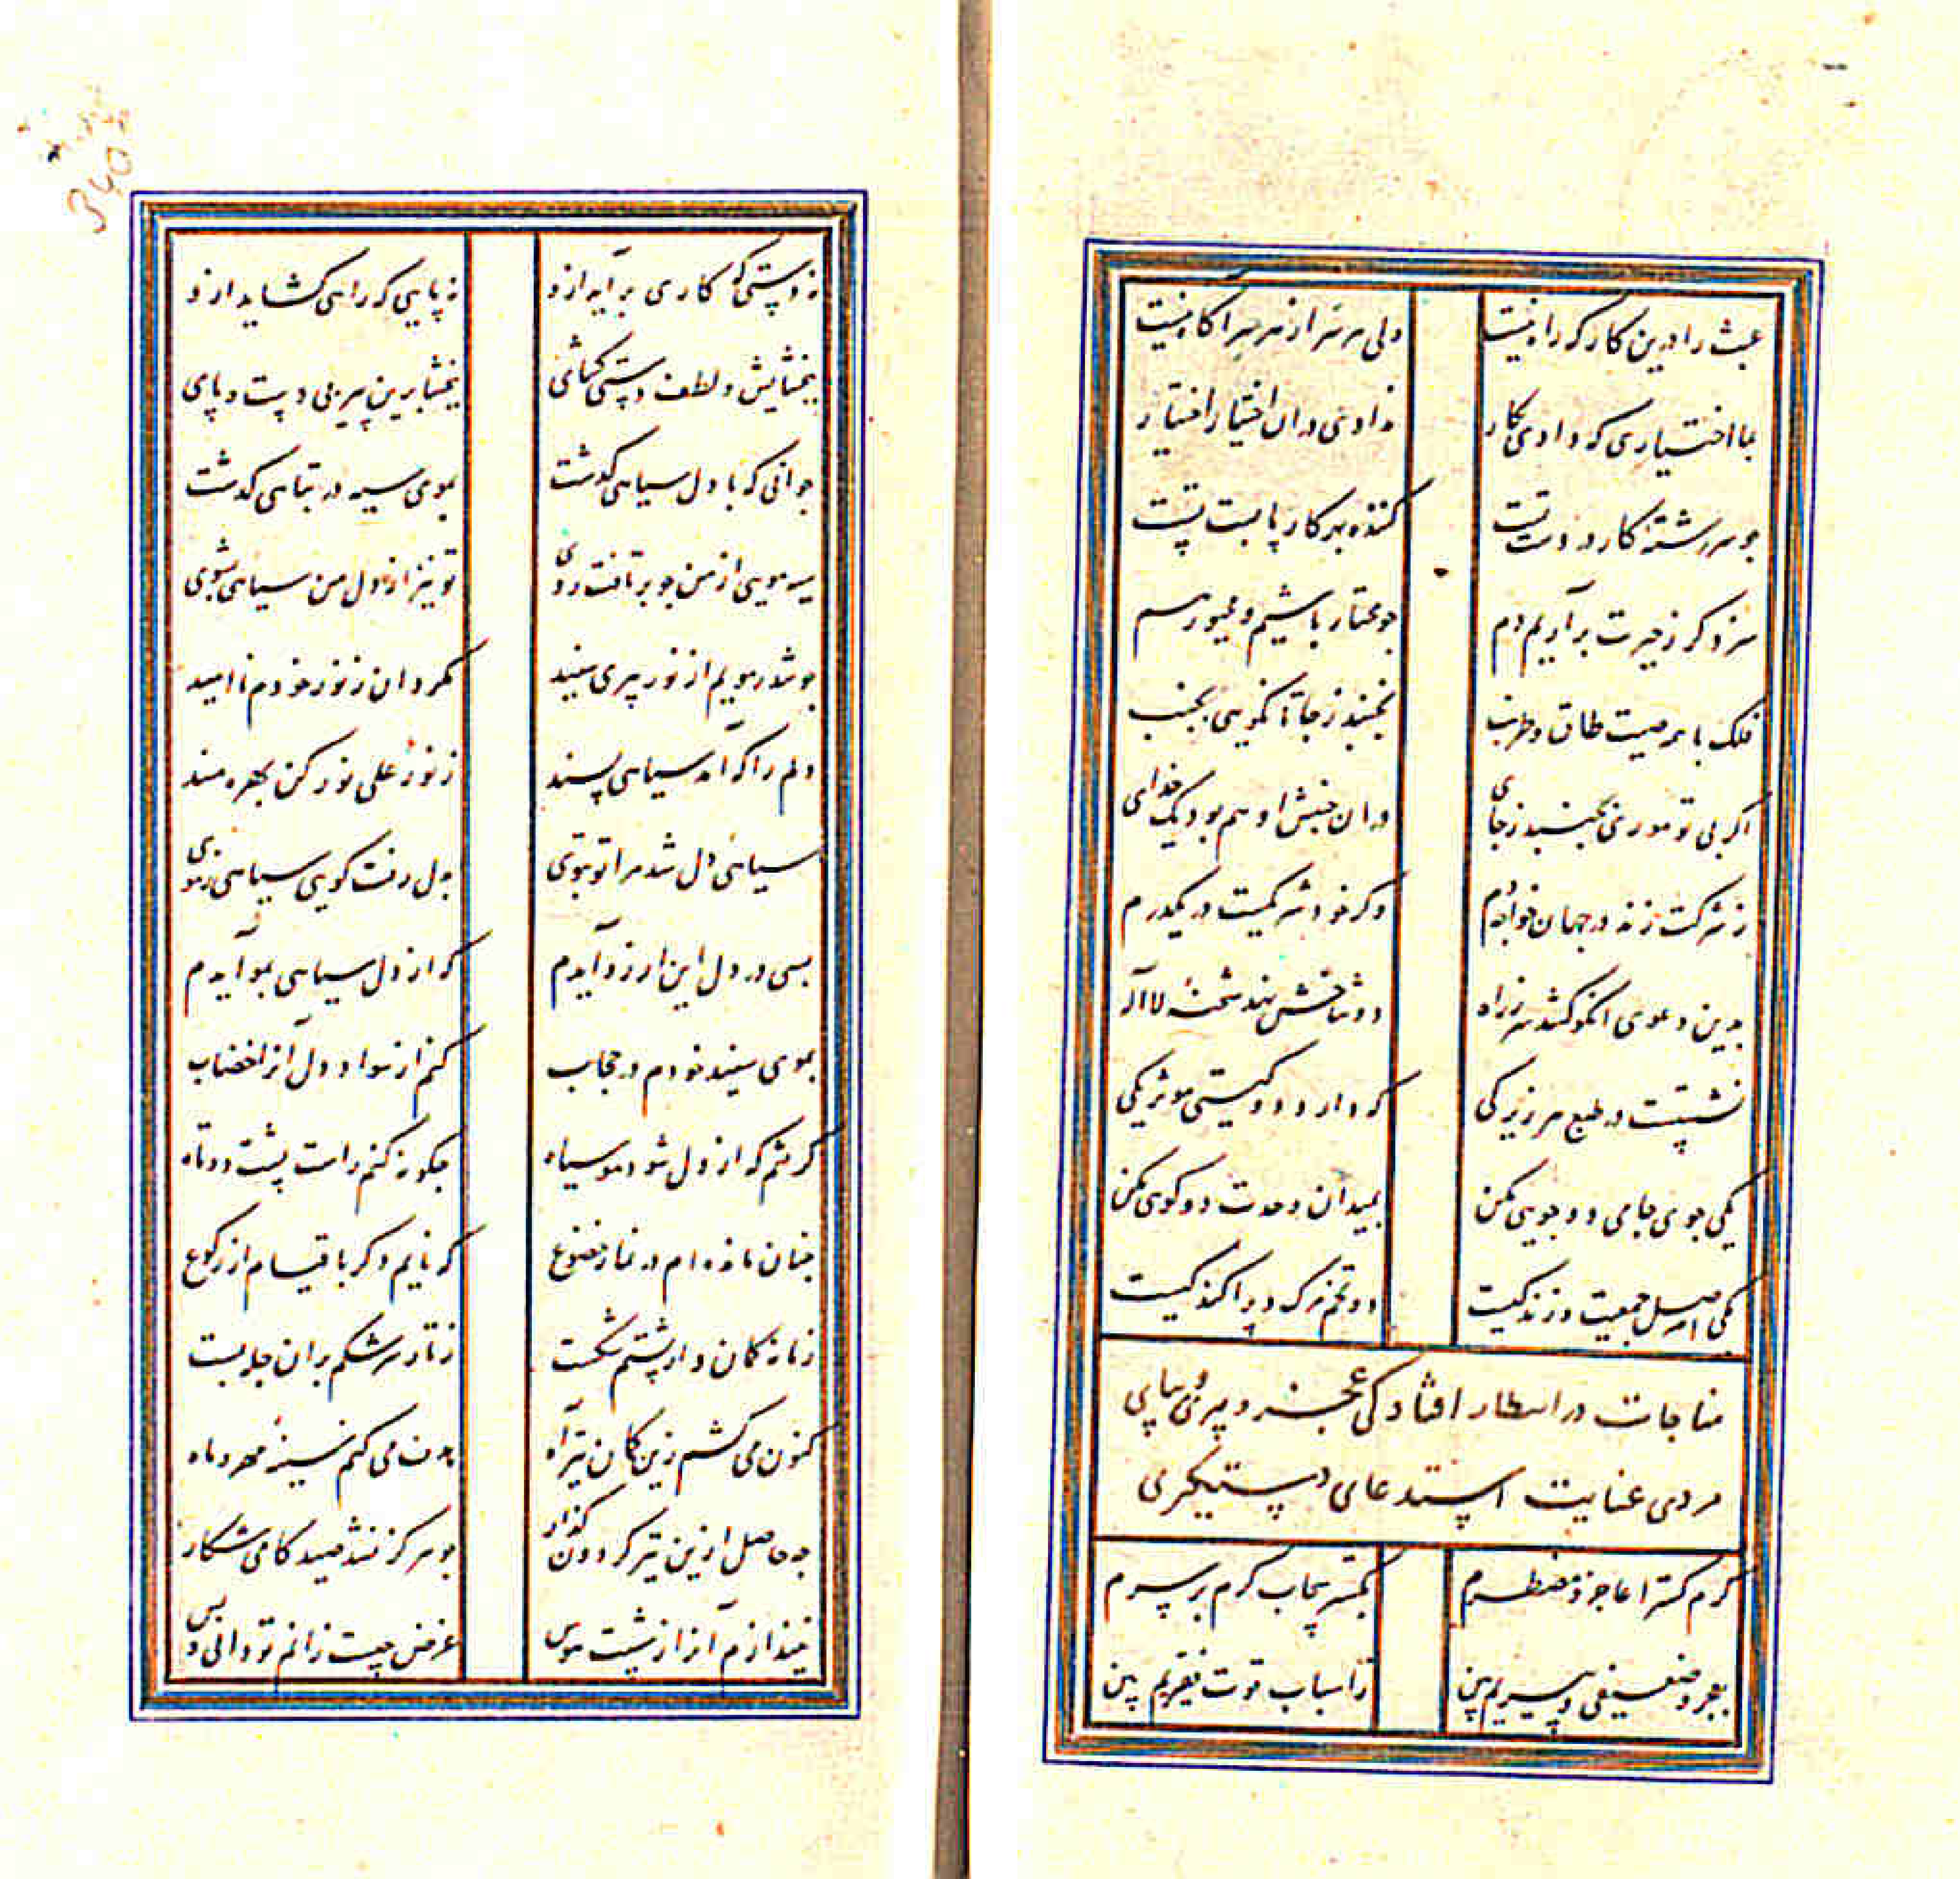 عبث را درین کار که راه نیست ولی هر سر از سر هر آگاه نیست
بما اختیاری که دادی بکار ندادی در آن اختیار اختیار
چو سررشتهٔ کار در دست تست کننده بهر کار پابست تست
سزد گر ز حیرت برآریم دم چو مختار باشیم و مجبور هم
فلک با همه صیت طاق و طرنب نجنبد ز جا تا نگویی بجنب
اگر بی تو موری بجنبد ز جای در آن جنبش او هم بود یک خدای
ز شرکت زند در جهان خواجه دم وگر خود شریکیست در یک درم
بدین دعوی آنکو کشد سر ز راه دو شاخش نهد شحنهٔ لا اله
نشستست در طبع هر زیرکی که دارد دو گیتی موثر یکی
یکی جوی جامی دو جویی مکن بمیدان وحدت دو گویی مکن
یکی اصل جمعیت و زندگیست دو تخم مرگ و پراکندگیست
مناجات در انتظار افتادگی عجز و پیری و بی پایی
مردی عنایت استدعای دستگیری
کرم گسترا عاجز و مضطرم بگستر سحاب کرم بر سرم
بعجز و ضعیفی و پیریم بین ز اسباب قوت فقیریم بین
نه دستی که کاری برآید ازو نه پایی که راهی گشاید ازو
ببخشایش و لطف دستی گشای ببخشا برین پیر بی دست و پای
جوانی که با دل سیاهی گذشت بموی سیه در تباهی گذشت
سیه مویی از من چو برتافت روی تو نیز از دل من سیاهی بشوی
چو شد مویم از نور پیری سپید مگردان ز نور خودم ناامید
دلم را که آمد سیاهی پسند ز نور علی نور کن بهره‌مند
سیاهی دل شد مرا تو بتوی بدل رفت گویی سیاهی ز موی
بسی در دل این آرزو آیدم که از دل سیاهی بمو آیدم
بموی سپید خودم در حجاب کنم از سواد دل آنرا خضاب
گرفتم که از دل شود مو سیاه چگونه کنم راست پشت دوتاه
چنان مانده‌ام در نماز خضوع که نایم دگر با قیام از رکوع
زمانه کمان وار پشتم شکست ز تار سرشکم بر آن چله بست
کنون می کشم زین کمان تیر آه هدف می کنم سینهٔ مهر و ماه
چه حاصل ازین تیر گردون گذار چو هرگز نشد صید کامی شکار
نیندازم آنرا ز شست هوس غرض چیست زانم تو دانی و بس